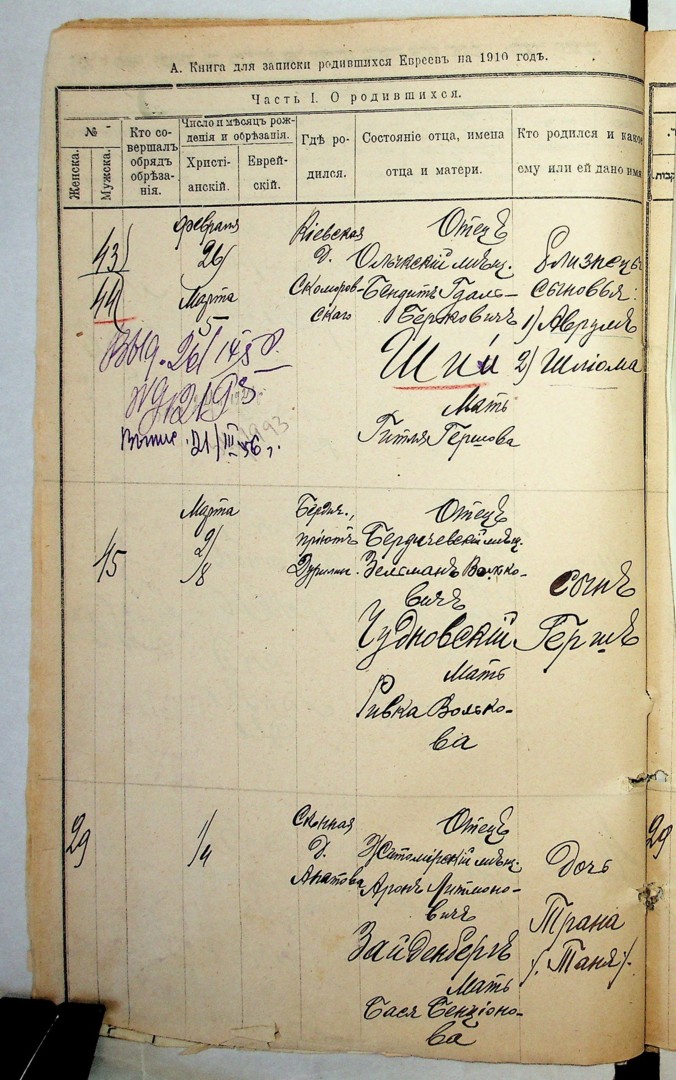 А. Книга для записки родившихся Евреевъ на 1910 годъ.
Часть I. О родившихся.
№
Женска.
Мужска.
Кто со-
вершалъ
обрядъ
обрѣза-
нія.
Число и мѣсяцъ рож-
денія и обрѣзанія.
Христі-
анскій.
Еврей-
скій.
Гдѣ ро-
дился.
Состояніе отца, имена
отца и матери.
Кто родился и какое
ему или ей дано имя
43)
44)
Февраля
26/
Марта
5
Кіевская
д.
Скоморов-
скаго
Отецъ
Олыкскій мѣщ.
Бендитъ Гдаль-
Берковичъ
Шпій
Мать
Гитля Гершова
Близнецы
сыновья:
1) Аврумъ
2) Шлiома
Выд. 26/
21/III 56 г.
45
Марта
2/
8
Бердич.,
пріютъ
Отецъ
Бердичевскій мѣщ.
Зельманъ Волько-
вичъ
Чудновскій
Мать
Ривка Волько-
ва
сынъ
Гершъ
29
1/
4
Сѣнная
д.
Апатова
Отецъ
Житомірскій мѣщ.
Аронъ Литмоно-
вичъ
Зайденбергъ
Мать
Бася Бенціоно-
ва
Дочь
Трана
/. Таня ./
29